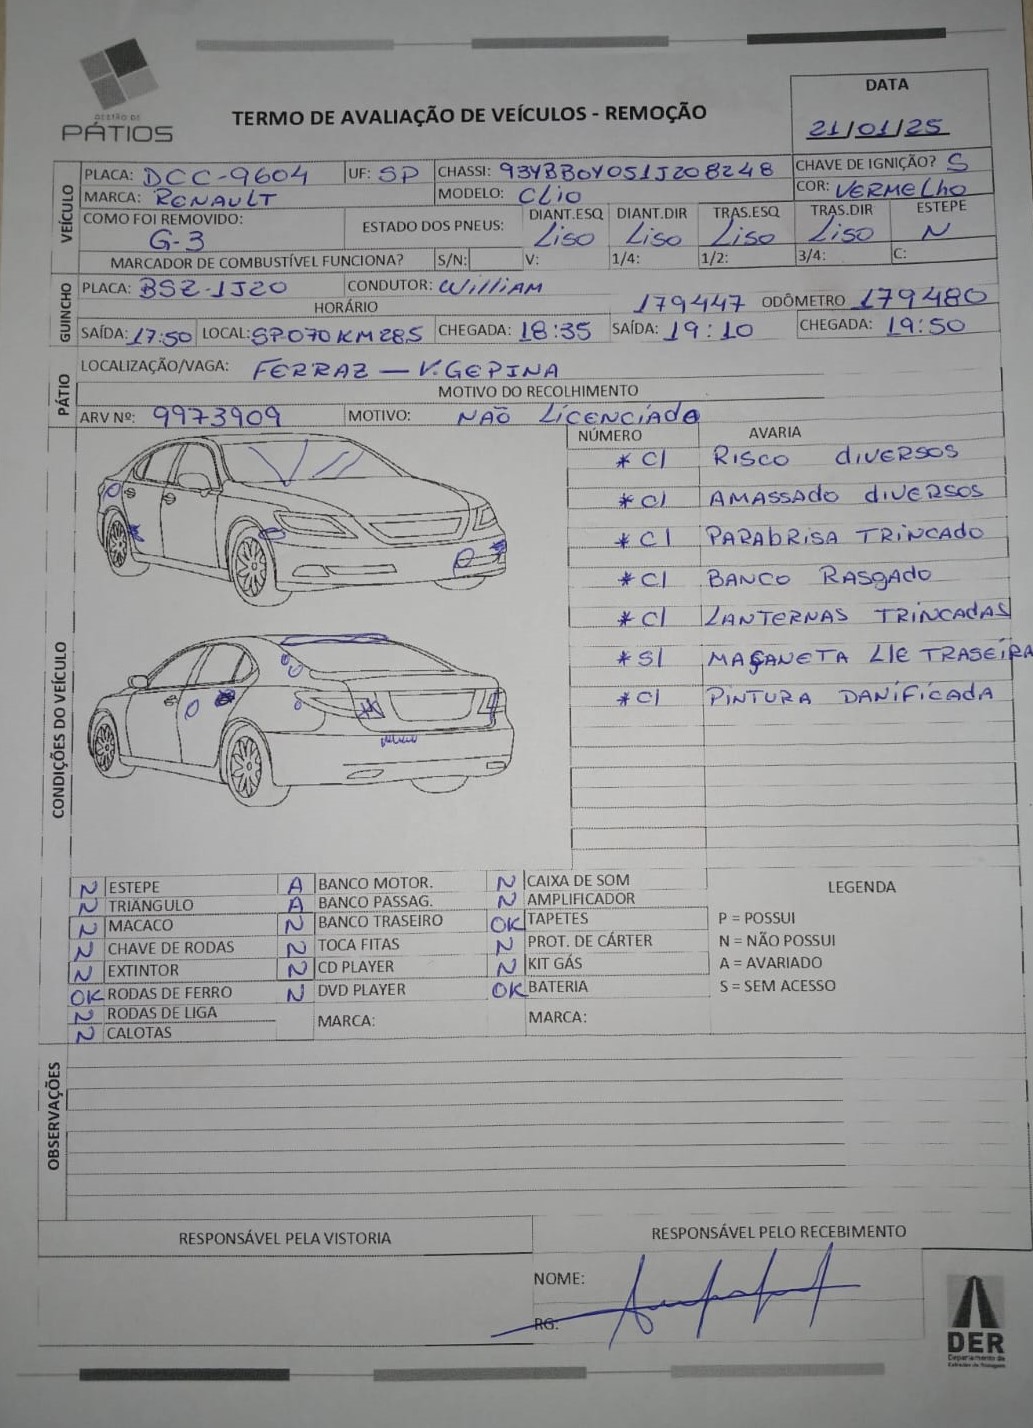 GESTÃO DE
PÁTIOS
TERMO DE AVALIAÇÃO DE VEÍCULOS - REMOÇÃO
DATA
21/01/25
VEÍCULO
PLACA: DCC-9604 UF: SP CHASSI: CHAVE DE IGNIÇÃO? S
MARCA: RENAULT MODELO: CLiO COR: VERMELHO
COMO FOI REMOVIDO: G-3 ESTADO DOS PNEUS: DIANT.ESQ LISO DIANT.DIR LISO TRAS.ESQ LISO TRAS.DIR LISO ESTEPE N
MARCADOR DE COMBUSTÍVEL FUNCIONA? S/N: V: 1/4: 1/2: 3/4: C:
GUINCHO
PLACA: BSZ-1J20 CONDUTOR: WilliAM
HORÁRIO 179447 ODÔMETRO 179480
SAÍDA: 17:50 LOCAL: SP070 KM 285 CHEGADA: 18:35 SAÍDA: 19:10 CHEGADA: 19:50
PÁTIO
LOCALIZAÇÃO/VAGA: FERRAZ — V.GEPINA
MOTIVO DO RECOLHIMENTO
ARV Nº: 9973909 MOTIVO: NÃO LICENCIADO
CONDIÇÕES DO VEÍCULO
NÚMERO AVARIA
* C/ RISCO diVERSOS
* C/ AMASSADO diVERSOS
* C/ PARAbRISA TRINCADO
* C/ BANCO RASGADO
* C/ LANTERNAS TRINCADAS
* S/ MAÇANETA L/E TRASEIRA
* C/ PINTURA DANIFICADA
N ESTEPE A BANCO MOTOR. N CAIXA DE SOM LEGENDA
N TRIÂNGULO A BANCO PASSAG. N AMPLIFICADOR
N MACACO N BANCO TRASEIRO OK TAPETES P = POSSUI
N CHAVE DE RODAS N TOCA FITAS N PROT. DE CÁRTER N = NÃO POSSUI
N EXTINTOR N CD PLAYER N KIT GÁS A = AVARIADO
OK RODAS DE FERRO N DVD PLAYER OK BATERIA S = SEM ACESSO
N RODAS DE LIGA MARCA: MARCA:
N CALOTAS
OBSERVAÇÕES
RESPONSÁVEL PELA VISTORIA RESPONSÁVEL PELO RECEBIMENTO
NOME:
RG:
DER
Departamento de
Estradas de Rodagem